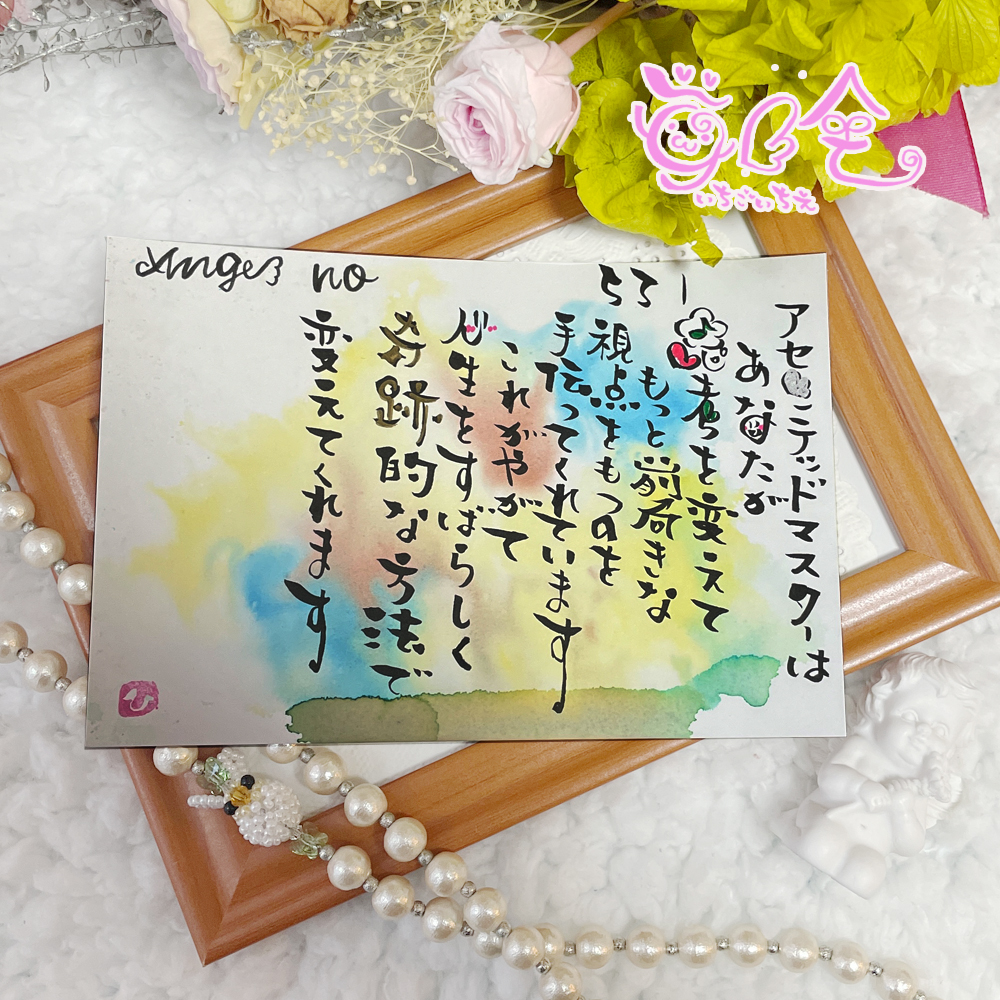 Anges no 531
アセンデッドマスターは
あなたが
思考を変えて
もっと前向きな
視点をもつのを
手伝ってくれています
これがやがて
人生をすばらしく
奇跡的な方法で
変えてくれます
いちごいちえ